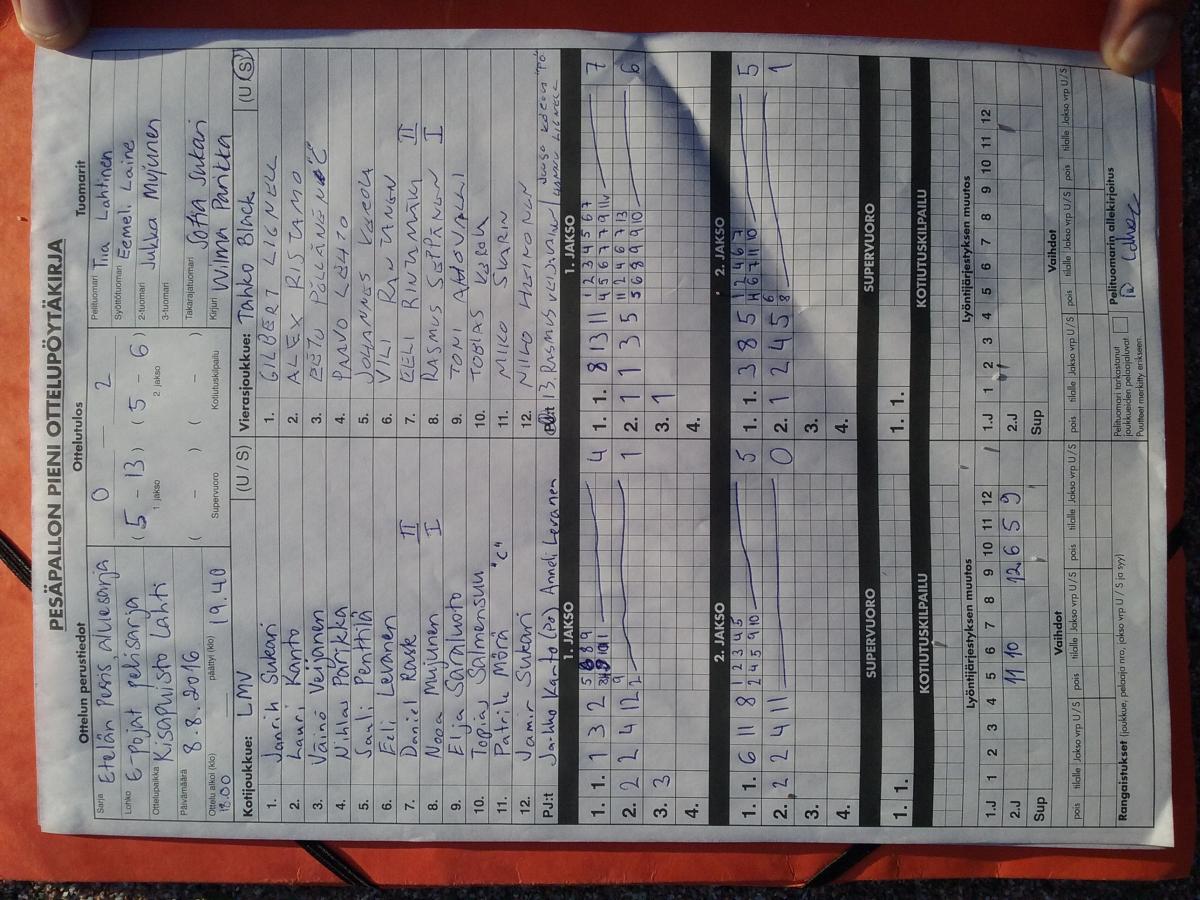 PESÄPALLON PIENI OTTELUPÖYTÄKIRJA
Ottelun perustiedot
Ottelutulos
Tuomarit
Sarja Etelän pesis aluesarja
Lohko E-pojat pelisarja
Ottelupaikka Kisapuisto Lahti
Päivämäärä 8.8.2016
Ottelu alkoi (klo) 18.00 päättyi (klo) 19.40
0 — 2
(5 - 13) (5 - 6)
1 jakso 2 jakso
( - ) ( - )
Supervuoro Kotiutuskilpailu
Pelituomari Tiia Lahtinen
Syöttötuomari Eemeli Laine
2-tuomari Jukka Mujunen
3-tuomari
Takarajatuomari Sofia Sukari
Kirjuri Wilma Parikka
Kotijoukkue: LMV (U / S)
1. Janrik Sukari
2. Lauri Kanto
3. Väinö Veijanen
4. Niklas Parikka
5. Sauli Penttilä
6. Eeli Levanen
7. Daniel Rask II
8. Nooa Mujunen I
9. Elja Saraluoto
10. Topias Salmensuu
11. Patrik Mörä "C"
12. Jamir Sukari
PJ:t Jarkko Kanto (PJ) Anneli Levanen
Vierasjoukkue: Tahko Black (U / S)
1. GILBERT LIGNELL
2. ALEX RISTAMO
3. EETU PÖLLÄNEN "C"
4. PAAVO LEHTO
5. JOHANNES
6. VILI RAUTANEN
7. EELI RINTAMÄKI II
8. RASMUS SEPPÄNEN I
9. TONI
10. TOBIAS
11. MIKO SKARIN
12. NIILO HEINONEN
13. RASMUS
1. JAKSO
1. JAKSO
1. 1. 1 3 2 5 6 8 9 4
2. 2 4 12 2 9 1
3. 3
4.
1. 1. 8 13 11 1 2 3 4 5 6 7 7
4 5 6 7 7 9 11
2. 1 1 3 5 11 2 4 6 7 13 6
5 6 8 9 9 10
3. 1
4.
2. JAKSO
2. JAKSO
1. 1. 6 11 8 1 2 3 4 5 5
2 4 5 9 10
2. 2 2 4 11 0
3.
4.
1. 1. 3 8 5 1 2 4 6 7 5
4 6 7 11 10
2. 1 2 4 5 6 1
8
3.
4.
SUPERVUORO
SUPERVUORO
1. 1.
1. 1.
KOTIUTUSKILPAILU
KOTIUTUSKILPAILU
Lyöntijärjestyksen muutos
1.J 1 2 3 4 5 6 7 8 9 10 11 12
2.J 11 10 12 6 5 9
Sup
Lyöntijärjestyksen muutos
1.J 1 2 3 4 5 6 7 8 9 10 11 12
2.J
Sup
Vaihdot
pois tilalle Jakso vrp U / S pois tilalle Jakso vrp U / S
Vaihdot
pois tilalle Jakso vrp U / S pois tilalle Jakso vrp U / S
Rangaistukset (joukkue, pelaaja nro, jakso vrp, U / S ja syy)
Pelituomari tarkastanut
joukkueiden pelaajaluvat.
Puutteet merkitty erikseen.
Pelituomarin allekirjoitus